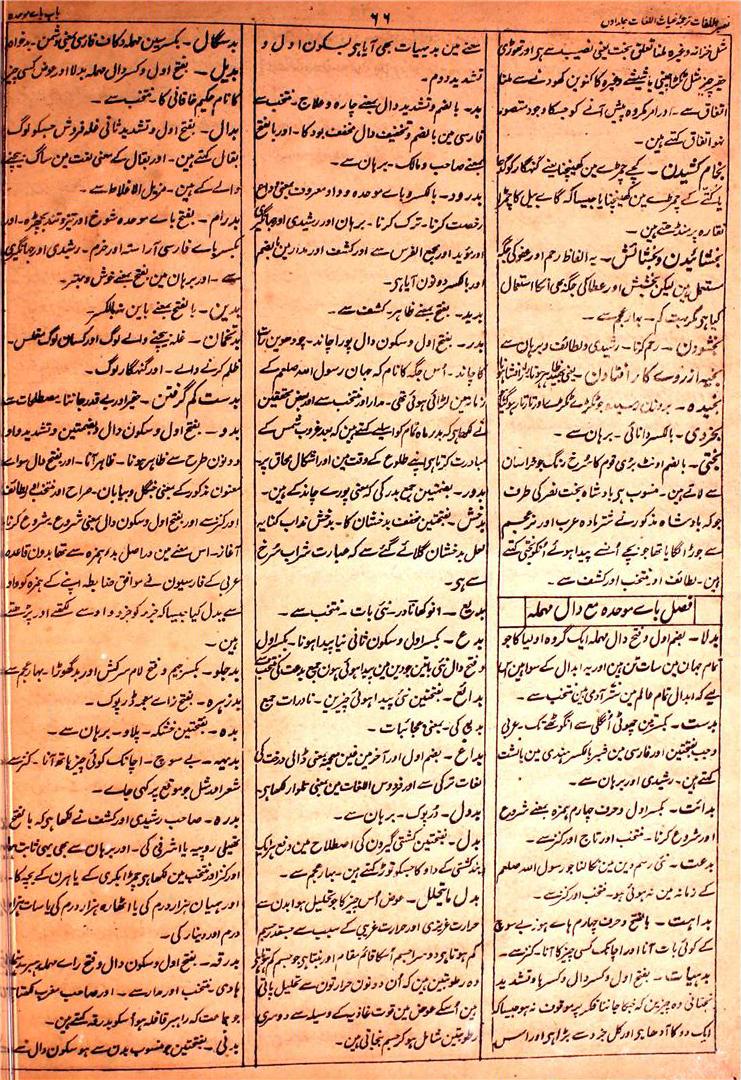 نصیر اللغات ترجمۂ غیاث اللغات بجلد اول
۶۶
باب باے موحدہ
مثل خزانہ وغیرہ ملنا تعلق بخت یعنی نصیب سے ہی اور تھوڑی
اتفاق سے۔ اور امر مکروہ پیش آنے کو جسکا وجود مقصود
نہو اتفاق کہتے ہین۔
بخام کشیدن۔ کچے چمڑے مین کھینچنا یعنے گنہگار کو گدھے
یا کتّے کے چمڑے مین کھینچنا یا جیسا کہ گاے بیل کا چمڑا
نقارہ پر منڈھتے ہین۔
بخشائیدن و بخشائش۔ یہ الفاظ رحم اور عفو کی جگہ
مستعمل ہین لیکن بخشش اور عطا کی جگہ بھی انکا استعمال
کیا ہی مگر بہت کم۔ بہار عجم سے۔
بخشودن۔ رحم کرنا۔ رشیدی و لطائف و برہان سے
بخیہ از روے کار افتادن۔
بخردی۔ بالکسر دانائی۔ برہان سے۔
بختی۔ بالضم اونٹ بڑی قوم کا سرخ رنگ جو خراسان
سے لاتے ہین۔ منسوب ہی بادشاہ بخت نصر کی طرف
جو کہ بادشاہ مذکور نے شتر مادہ عرب اور نر عجم
سے جوڑا لگایا تھا جو بچے اُنسے پیدا ہوئے اُنکو بختی کہتے
ہین۔ لطائف اور منتخب اور کشف سے۔
فصل باے موحدہ مع دال مہملہ
بدلا۔ بضم اول و فتح دال مہملہ ایک گروہ اولیا کا جو
تمام جہان مین سات تن ہین اور یہ ابدال کے سوا ہین
لیے کہ ابدال تمام عالم مین ستر آدمی ہین منتخب سے۔
بدست۔ بکسرتین چھوٹی اُنگلی سے انگوٹھے تک۔ عربی
وجب بفتحتین اور فارسی مین شبر بالکسر ہندی مین بالشت
کہتے ہین۔ رشیدی اور برہان سے۔
بدائت۔ بکسر اول و حرف چہارم ہمزہ بمعنے شروع
اور شروع کرنا۔ منتخب اور تاج اور کنز سے۔
بدعت۔ نئی رسم دین مین نکالنا جو رسول اللہ صلعم
کے زمانہ مین نہ ہوئی ہو۔ منتخب اور کنز سے۔
بداہت۔ بالفتح و حرف چہارم ہاے ہوز بے سوچ
کے کوئی بات آنا اور اچانک کسی چیز کا آنا۔ کنز سے۔
بدیہیات۔ بفتح اول و کسر دال و کسر ہا و تشدید
تحتانی وہ چیزین کہ جنکا جاننا تفکر پر موقوف نہو جیسا کہ
ایک دو کا آدھا ہی اور کل جزو سے بڑا ہی اور اس
معنے مین بدیہیات بھی آیا ہی بسکون اول و
تشدید دوم۔
بد۔ بالضم و تشدید دال بمعنے چارہ و علاج۔ منتخب سے
فارسی مین بالضم و تخفیف دال مخفف بود کا۔ اور بالفتح
بمعنے صاحب و مالک۔ برہان سے۔
بدرود۔ بالکسر و باے موحدہ و واو معروف بمعنی وداع
رخصت کرنا۔ ترک کرنا۔ برہان اور رشیدی اور جہانگیری
اور مؤید اور مجمع الفرس سے اور کشف اور مدار مین بالضم
اور بالکسر دونون آیا ہی۔
بدید۔ بالفتح بمعنے ظاہر۔ کشف سے۔
بدر۔ بفتح اول و سکون دال پورا چاند۔ چودھوین رات
کا چاند۔ اُس جگہ کا نام کہ جہان رسول اللہ صلعم کے
زمانہ مین لڑائی ہوئی تھی۔ مدار اور منتخب سے اور بعض محققین
نے لکھا ہی کہ بدر ماہ تمام کو اسلیے کہتے ہین کہ بعد غروب شمس کے
مبادرت کرتا ہی اپنے طلوع کے وقت مین اور اشکال محاق پر۔
بدور۔ بضمتین جمع بدر کی بمعنی پورے چاند کے ہین۔
بدخش۔ بفتحتین مخفف بدخشان کا۔ بدخش مذاب کنایہ
لعل بدخشان گلائے گئے سے کہ عبارت شراب سرخ
سے ہی۔
بدیع۔ انوکھا نادر۔ نئی بات۔ منتخب سے۔
بدع۔ بکسر اول و سکون ثانی نیا پیدا ہونا۔ بکسر اول
و فتح دال نئی باتین جو دین مین پیدا ہوئی ہون جمع بدعت کی منتخب سے
بدائع۔ بفتحتین نئی پیدا ہوئی چیزین۔ نادرات جمع
بدیع کی۔ بمعنی وعجائبات۔
بداغ۔ بضم اول اور آخر مین غین معجمہ بمعنی ڈالی درخت کی
لغات ترکی سے اور فردوس اللغات مین بمعنی تلوار لکھا ہی۔
بددل۔ ڈرپوک۔ برہان سے۔
بدل۔ بفتحتین کشتی گیرون کی اصطلاح مین دفع ہر یک
بند کشتی کے داو کا جسکو توڑ کہتے ہین۔ بہار عجم سے۔
بدل ما یتحلل۔ عوض اُس چیز کا جو تحلیل ہو ا بدن سے
حرارت غریزی اور حرارت غریبی کے سبب سے جسقدر جسم
کم ہوتا ہی دوسرا جسم اُسکا قائم مقام اور بنتا ہی جو جسم کم ہوتا ہی
وہ رطوبتین ہین کہ اُن دونون حرارتون سے تحلیل پاتی
ہین اُسکے عوض مین قوت غاذیہ کے وسیلہ سے دوسری
رطوبتین شامل ہو کر جسم بنجاتی ہین۔
بدسگال۔ بکسر سین مہملہ و کاف فارسی بمعنی دشمن۔ بدخواہ
بدیل۔ بفتح اول و کسر دال مہملہ بدلا اور عوض کسی چیز
کا نام حکیم خاقانی کا۔ منتخب سے۔
بدال۔ بفتح اول و تشدید ثانی غلہ فروش جسکو لوگ
بقال کہتے ہین۔ اور بقال کے معنی لغت مین ساگ بیچنے
والے کے ہین۔ مزیل الاغلاط سے۔
بدرام۔ بفتح باے موحدہ شوخ اور تیز و تند بچھیڑہ۔ اور
بکسر باے فارسی آراستہ اور خرم۔ رشیدی اور جہانگیری
سے۔ اور برہان مین بفتح بمعنے خوش و بہتر۔
بدین۔ بالفتح بمعنے باین
بدتخمان۔ غلہ بیچنے والے لوگ اور کسان لوگ مفلس۔
ظلم کرنے والے۔ اور گنہگار لوگ۔
بدست کم گرفتن۔ حقیر اور بے قدر جاننا۔ مصطلحات سے
بدو۔ بفتح اول و سکون دال و بضمتین و تشدید واو
دونون طرح سے ظاہر ہونا۔ ظاہر آنا۔ اور بفتح دال سواے
معنون مذکور کے بمعنی جنگل و بیابان۔ صراح اور منتخب و لطائف
اور کنز سے اور بفتح اول و سکون دال بمعنی شروع۔ شروع کرنا۔
آغاز۔ اس معنے مین دراصل بدء ہمزہ سے تھا بدون قاعدہ
عربی کے فارسیون نے موافق ضابطہ اپنے کے ہمزہ کو واو
سے بدل کیا جیسا کہ جزء کو جزو واو سے لکھتے اور پڑھتے
ہین۔
بدجلو۔ بکسر جیم و فتح لام سرکش اور بد گھوڑا۔ بہار عجم سے
بدزہرہ۔ بفتح زاے معجمہ ڈرپوک۔
بدہ۔ بفتحتین خشکہ۔ پلاو۔ برہان سے۔
بدیہہ۔ بے سوچ۔ اچانک کوئی چیز ہاتھ آنا۔ کنز سے
شعر اور مثل جو موقع پر کہی جاے۔
بدرہ۔ صاحب رشیدی اور کشف نے لکھا ہی کہ بالفتح
تھیلی روپیہ یا اشرفی کی۔ اور برہان سے بھی یہی ثابت
اور کنز اور منتخب مین لکھا ہی چمڑا بکری کے یا ہرن کے بچہ کا۔
اور ہمیان ہزار درم کی یا اٹھارہ ہزار درم کی یا سات ہزار
درم اور دینار کی۔
بدرقہ۔ بفتح اول و سکون دال و فتح راے مہملہ رہبر
ہادی۔ منتخب اور مدار سے۔ اور صاحب مغرب کہتا
جو جماعت کہ راہبر قافلہ ہو اُسکو بدرقہ کہتے ہین۔
بدنی۔ بفتحتین جو منسوب بدن سے ہو سکون دال سے